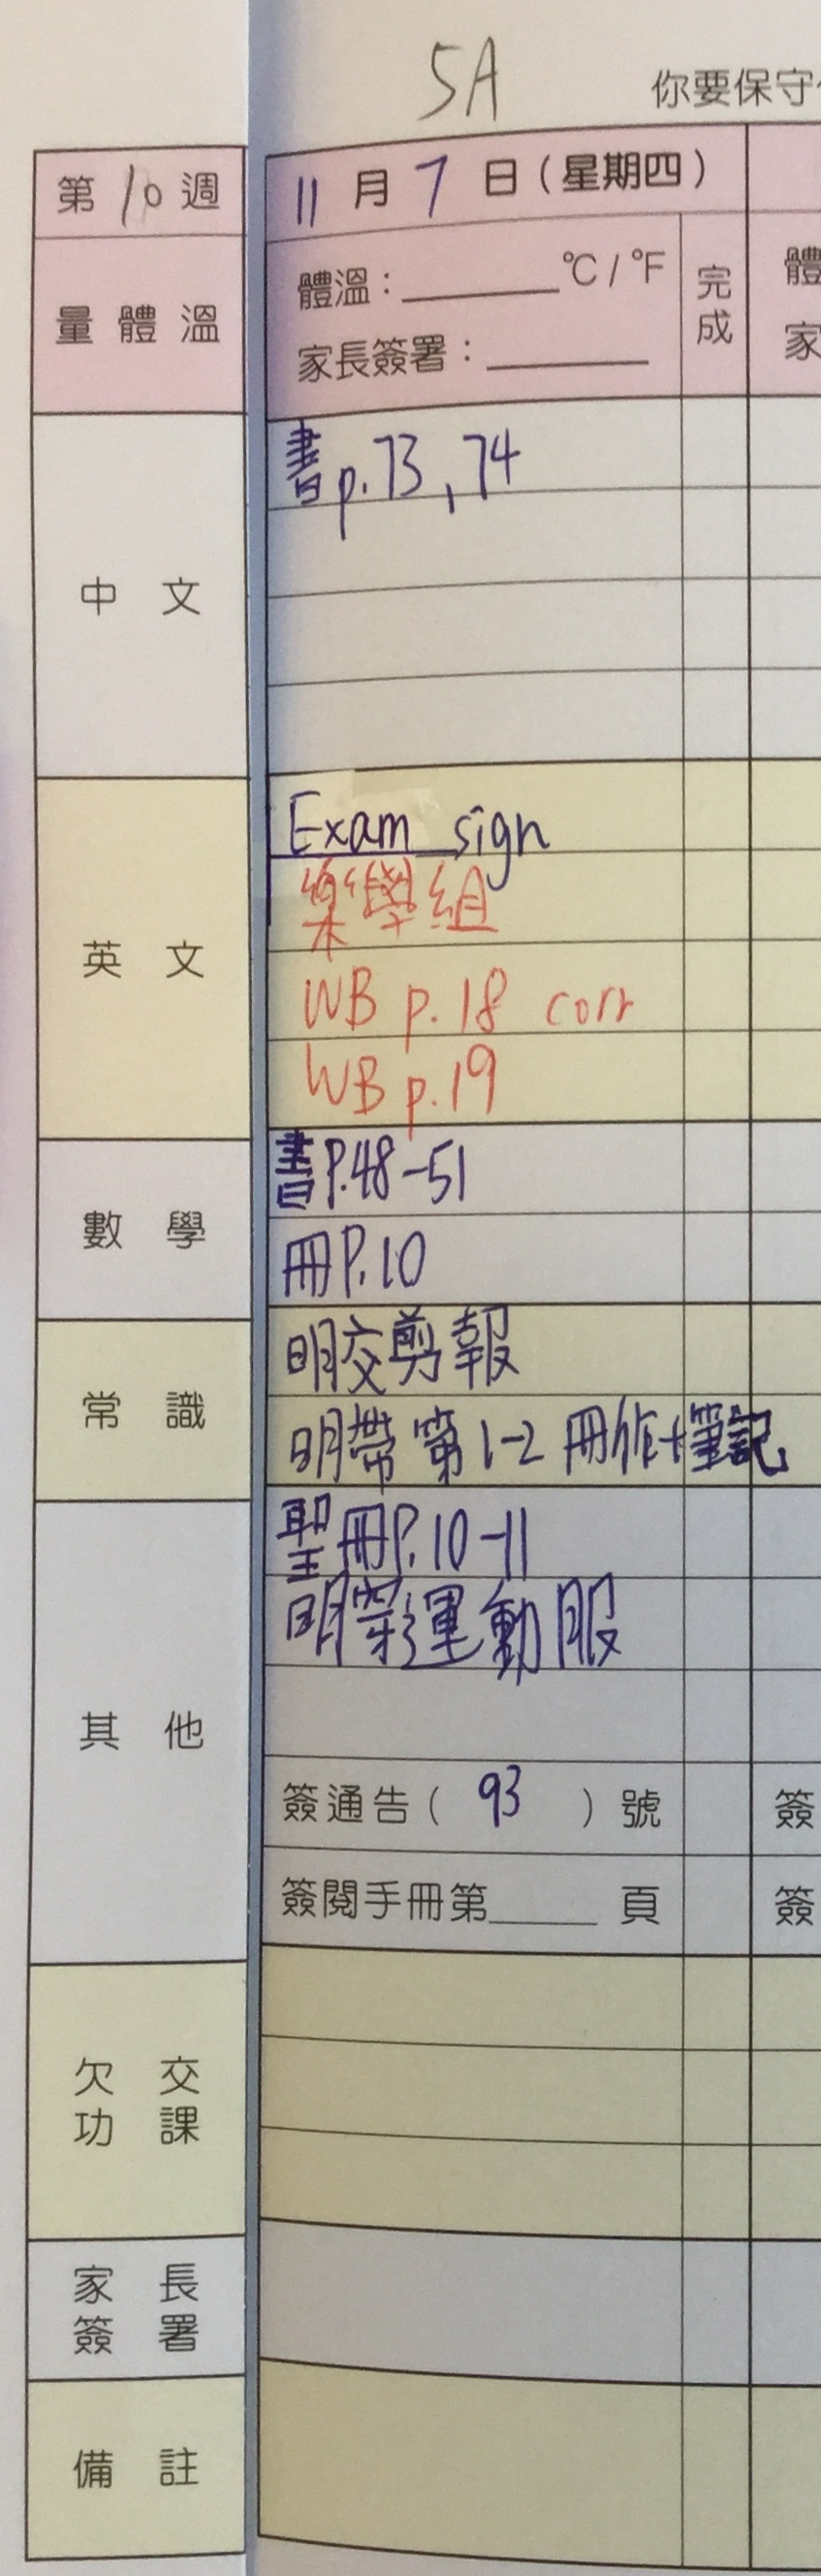 5A
你要保守
第10週
11月7日(星期四)
量體溫
體溫：______°C/°F
完成
體
家長簽署：______
家
中文
書p.73,74
英文
Exam sign
樂學組
WB p.18 corr
WB p.19
數學
書P.48-51
冊P.10
常識
明交剪報
明帶第1-2冊作+筆記
其他
聖冊P.10-11
明穿運動服
簽通告( 93 )號
簽
簽閱手冊第____頁
簽
欠交功課
家長簽署
備註